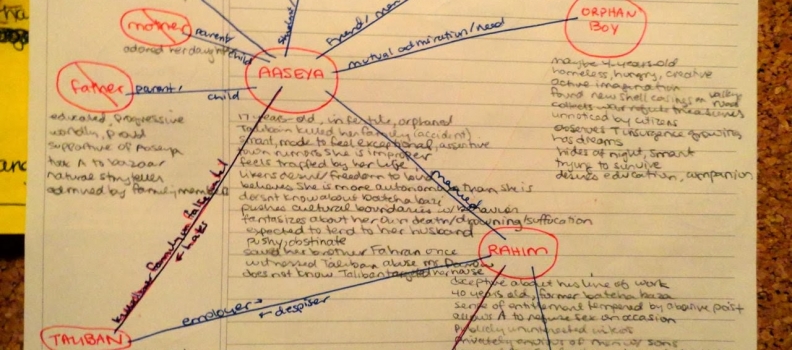 mother
parent/
child
adored her daughter
student
friend/
mutual admiration/need
ORPHAN
BOY
AASEYA
father
parent/
child
educated, progressive
worldly, proud
supportive of Aaseya
took A to bazaar
natural storyteller
admired by family, members
17 years-old, infertile, orphaned
Taliban killed her family (accident)
smart, made to feel exceptional, assertive
town rumors she is improper
feels trapped by her life
likens desire/freedom to
believes she is more autonomous than she is
doesn't know about batcha bazi
pushes cultural boundaries w/ behavior
fantasizes about her own death/drowning/suffocation
expected to tend to her husband
pushy, obstinate
saved her brother Fahran once
witnessed Taliban abuse
does not know Taliban targeted her house
maybe 4-years-old
homeless, hungry, creative
active imagination
found new shell casings in
collects
unnoticed by citizens
observes T insurgence growing
has dreams
hides at night, smart
trying to survive
desires education, companion
married
RAHIM
deceptive about his line of work
40 years old, former batcha baza
sense of entitlement tempered by abusive past
allows A to refuse sex on occasion
publicly uninterested in kids
privately envious of men w/ sons
hates
TALIBAN
employer
despiser